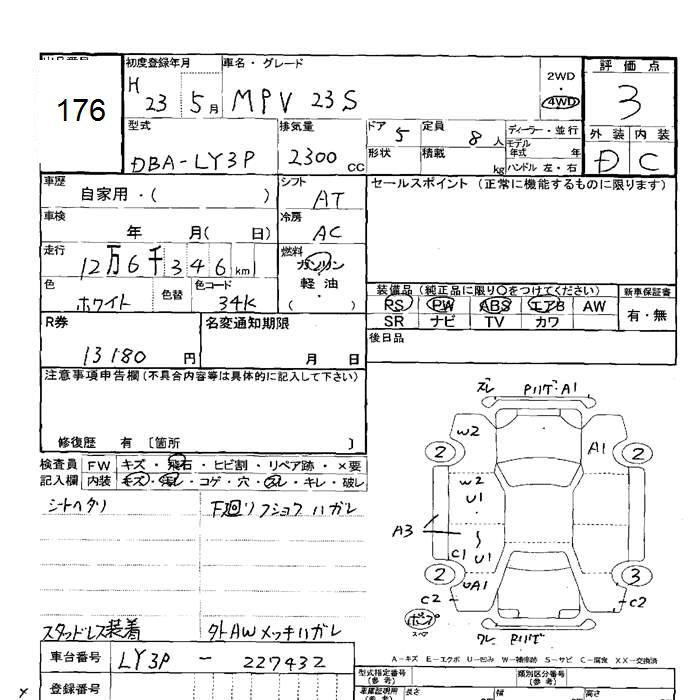 176
初度登録年月
車名・グレード
H 23 5月
MPV 23S
2WD
・
4WD
評価点
3
型式
DBA-LY3P
排気量
2300 CC
ドア 5
定員 8人
形状
積載 kg
ディーラー・並行
モデル年式 年
ハンドル 左・右
外装 内装
D C
車歴
自家用・( )
シフト
AT
セールスポイント (正常に機能するものに限ります)
車検
年 月( 日)
冷房
AC
走行
12万6千346km
燃料
ガソリン
・
軽油
・
( )
色
ホワイト
色替
色コード
34K
装備品 (純正品に限り○をつけてください)
新車保証書
PS PW ABS エアB AW
SR ナビ TV カワ
有・無
R券
13180円
名変通知期限
月 日
後日品
注意事項申告欄(不具合内容等は具体的に記入して下さい)
修復歴 有 〔箇所 〕
検査員記入欄
FW キズ・飛石・ヒビ割・リペア跡・×要
内装 キズ・コゲ・穴・スレ・キレ・破レ
シートヘタリ
下廻リフショクハガレ
スタッドレス装着
タトAWメッキハガレ
車台番号
LY3P-227432
登録番号
ズレ Pハゲ・A1
W2
A1
2
2
W2
U1
A3
C1
U1
2
3
UA1
C2
C2
スペア
ワレ Pハゲ
A-キズ E-エクボ U-凹み W-補修跡 S-サビ C-腐食 XX-交換済
型式指定番号(参考)
類別区分番号(参考)
車庫証明用(参考)
長さ
幅
高さ